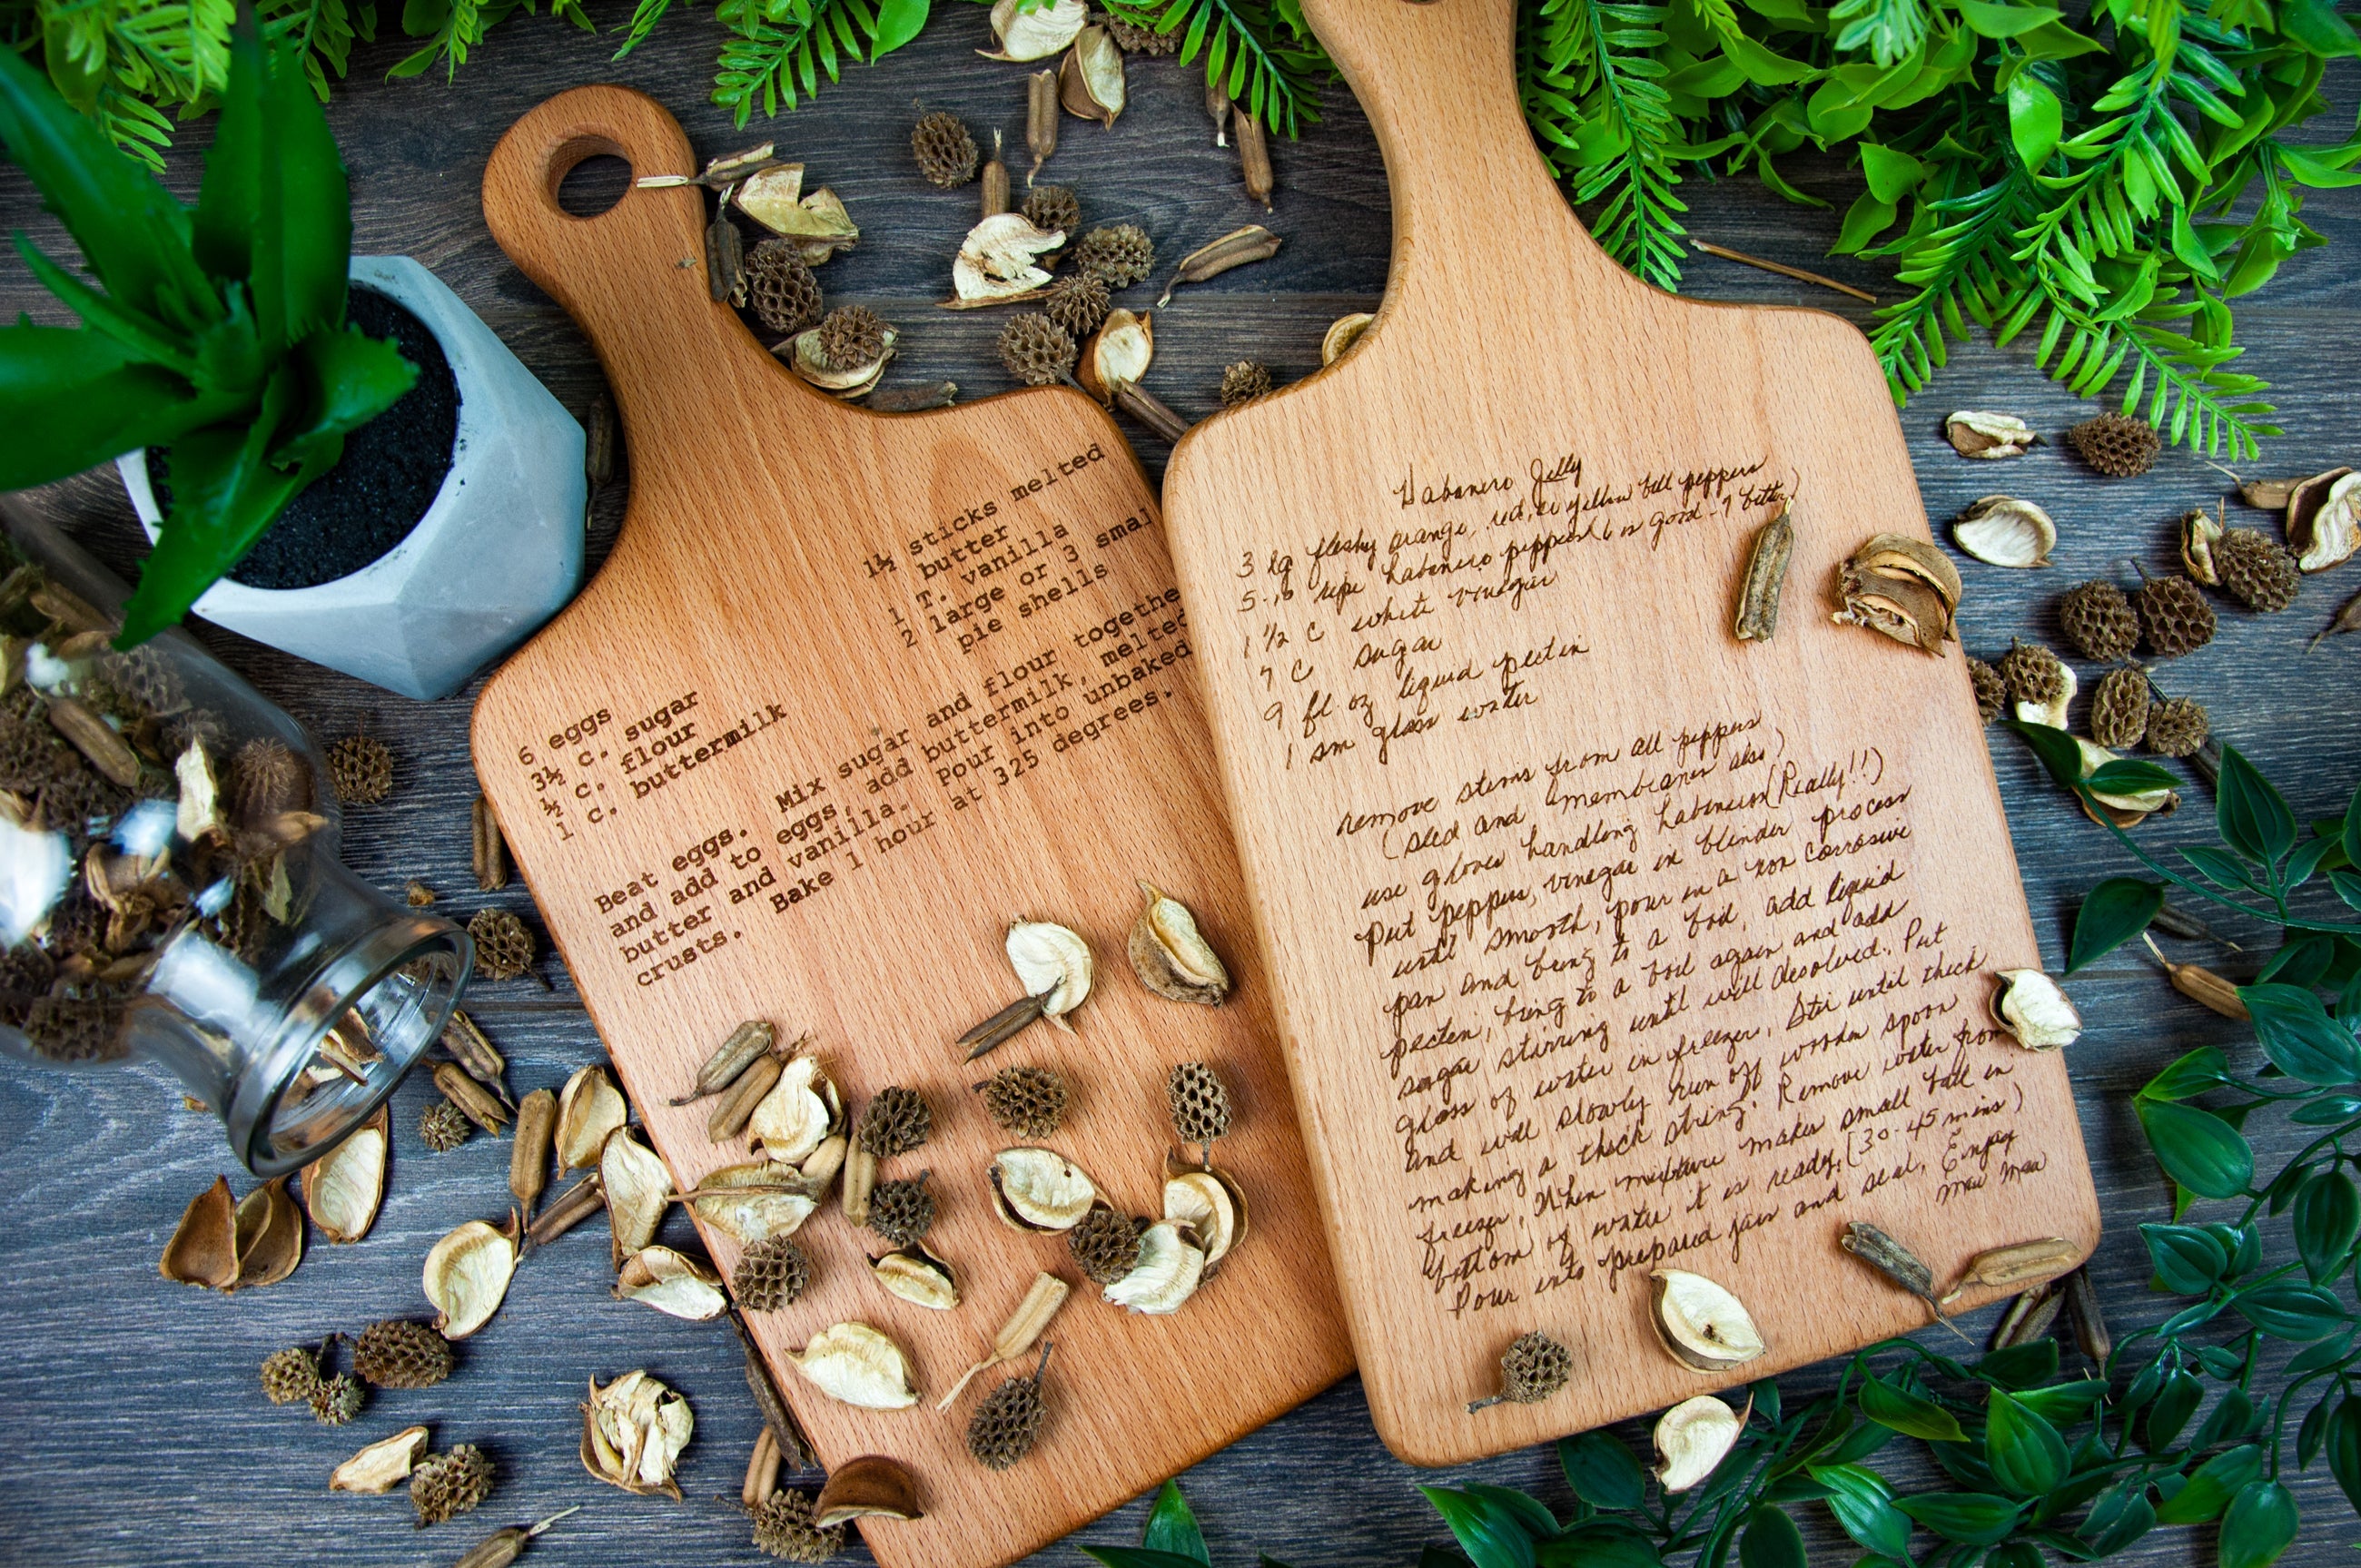 1½ sticks melted
butter
1 T. vanilla
2 large or 3 smal
pie shells
6 eggs
3½ c. sugar
½ c. flour
1 c. buttermilk
Beat eggs. Mix sugar and flour togethe
and add to eggs, add buttermilk, melted
butter and vanilla. Pour into unbaked
crusts. Bake 1 hour at 325 degrees.
Habanero Jelly
3 lg fleshy orange, red, or yellow bell peppers
5-10 ripe habanero peppers (6 is good - 7 better)
1 1/2 c white vinegar
7 c sugar
9 fl. oz liquid pectin
1 sm glass water
remove stems from all peppers
(seed and membranes also)
use gloves handling habaneros (Really!!)
Put peppers, vinegar in blender process
until smooth, pour in a non corrosive
pan and bring to a boil, add liquid
pectin, bring to a boil again and add
sugar stirring until well desolved. Put
glass of water in freezer. Stir until thick
and will slowly run off wooden spoon
making a thick string. Remove water from
freezer. When mixture makes small ball in
bottom of water it is ready. (30-45 mins)
Pour into prepared jars and seal, Enjoy
Maw Maw